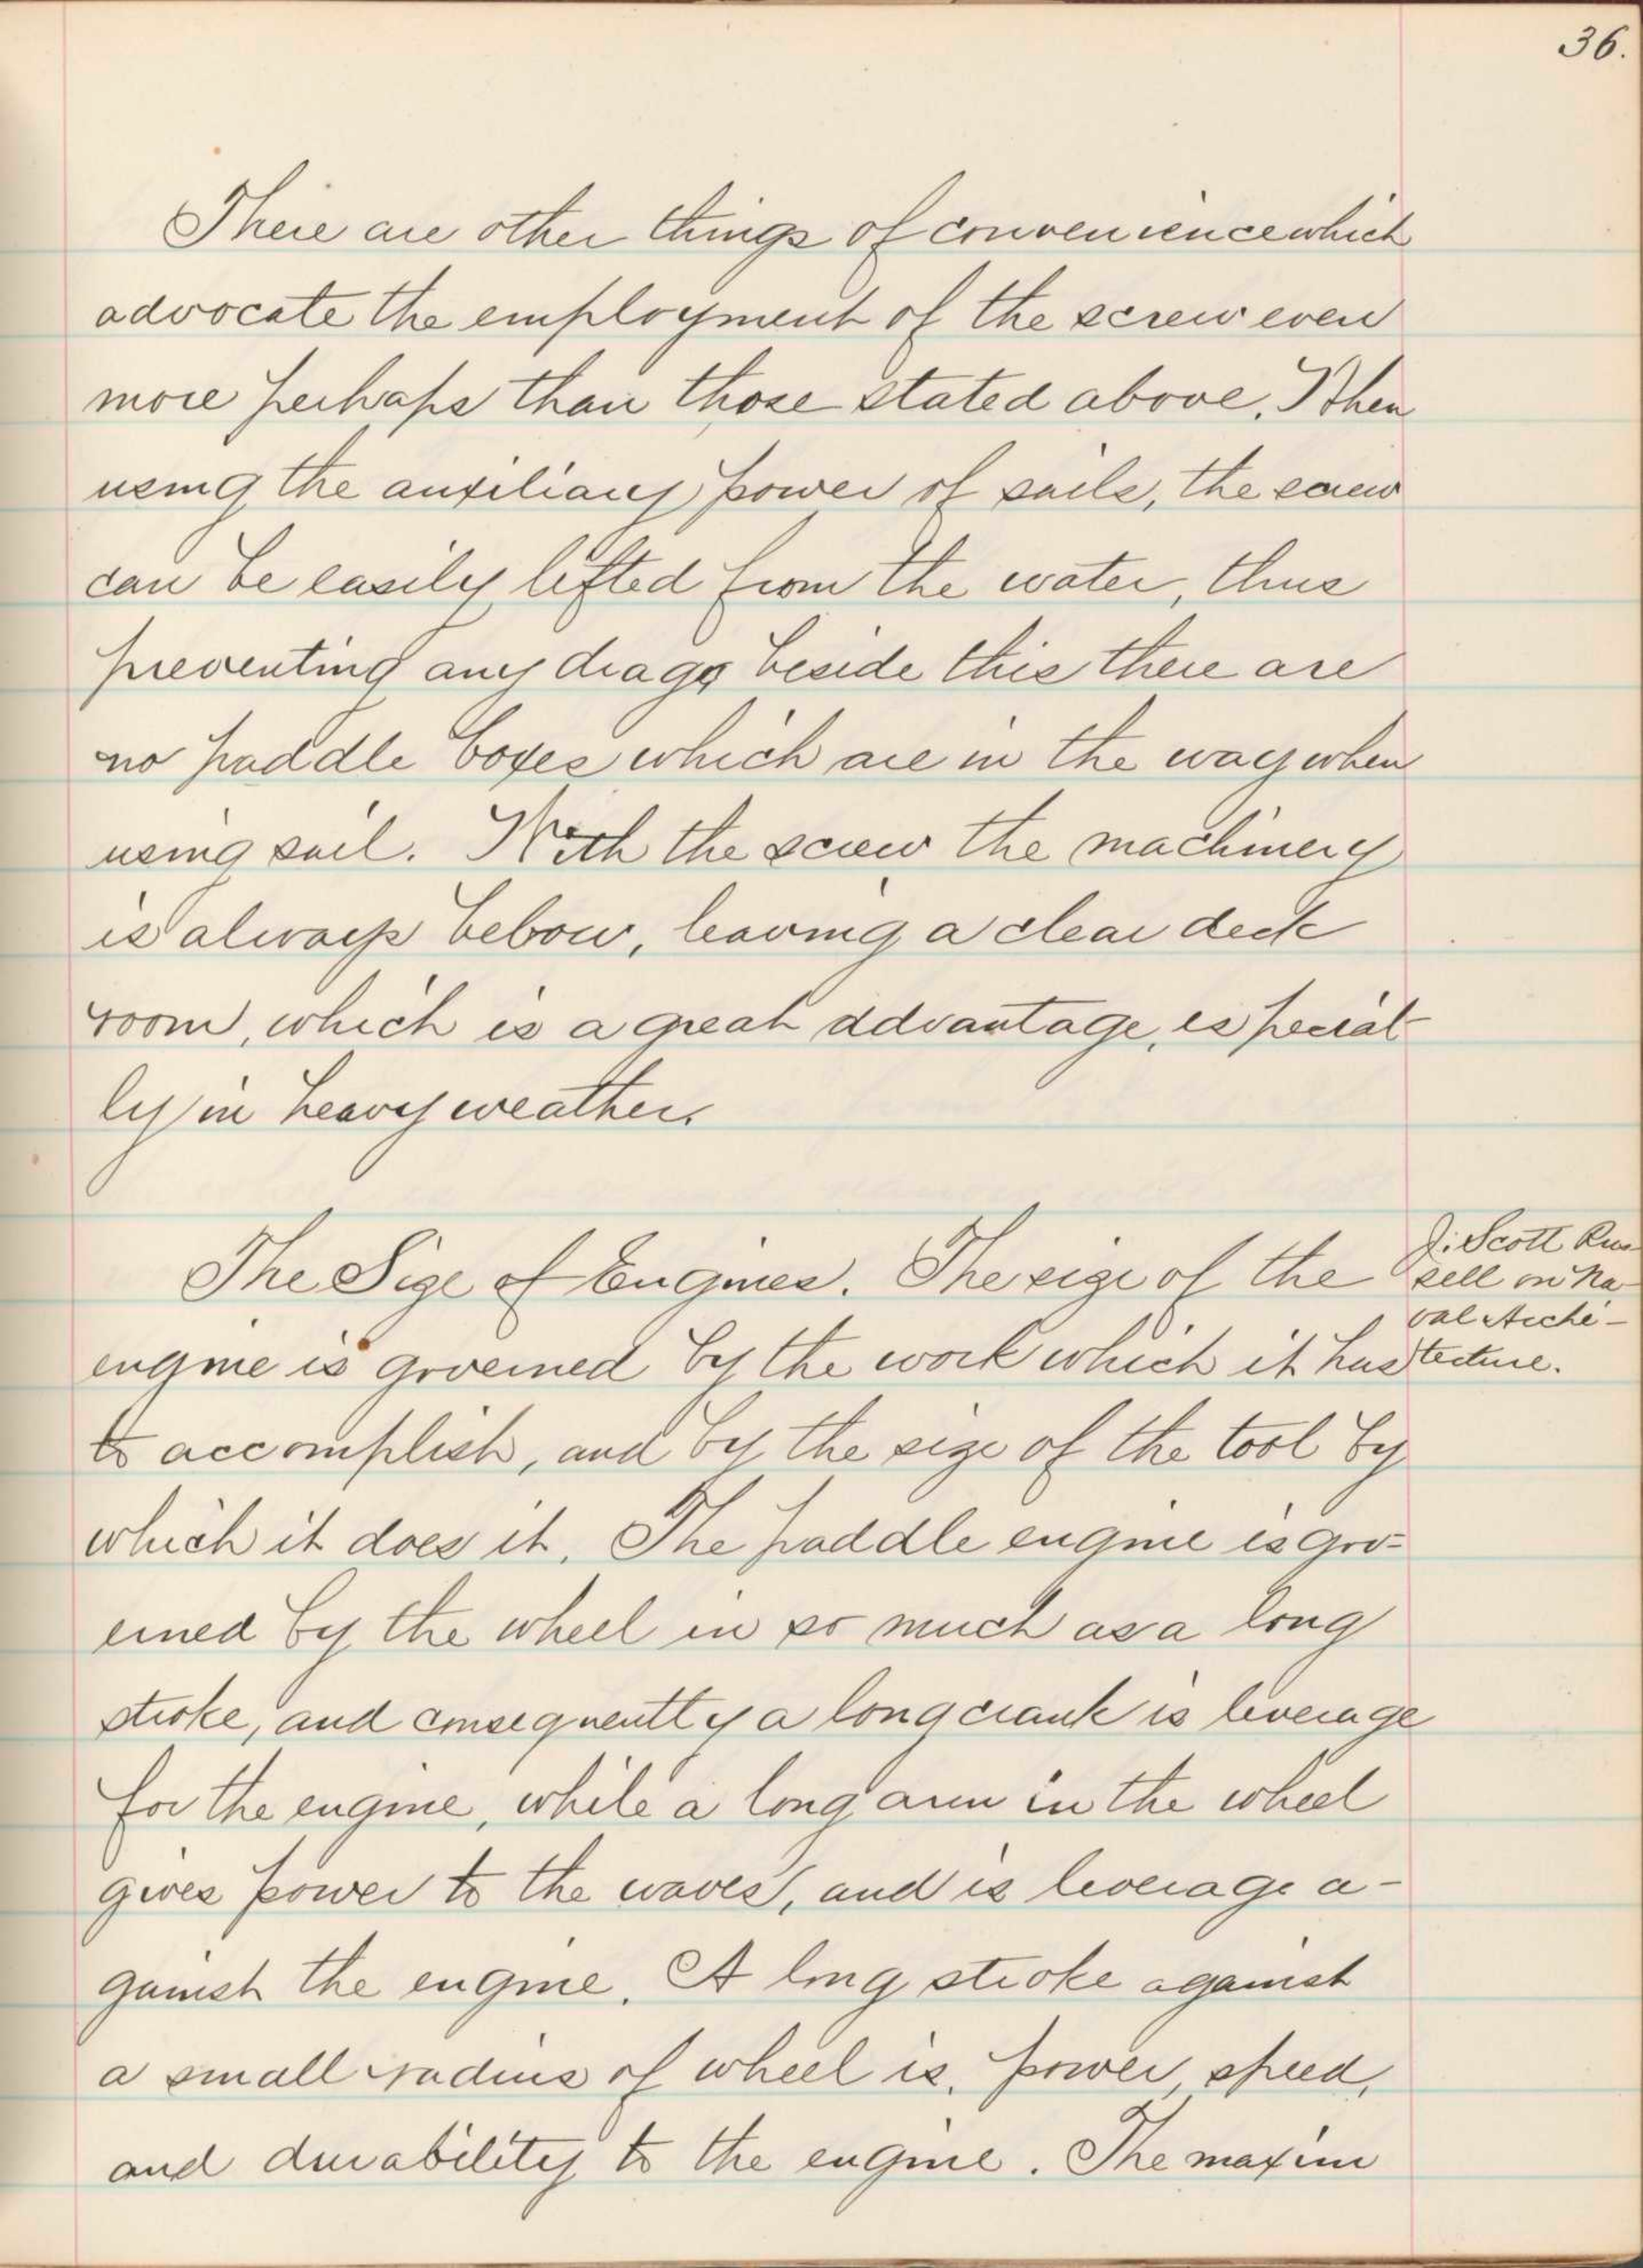 36.
There are other things of convenience which
advocate the employment of the screw even
more perhaps than those stated above. When
using the auxiliary power of sails, the screw
can be easily lifted from the water, thus
preventing any drag, beside this there are
no paddle boxes which are in the way when
using sail. With the screw the machinery
is always below, leaving a clear deck
room, which is a great advantage, especial-
ly in heavy weather.
The Size of Engines. The size of the
J. Scott Rus-
sell on Na-
val Archi-
tecture.
engine is governed by the work which it has
to accomplish, and by the size of the tool by
which it does it. The paddle engine is gov-
erned by the wheel in so much as a long
stroke, and consequently a long crank is leverage
for the engine, while a long arm in the wheel
gives power to the waves, and is leverage a-
gainst the engine. A long stroke against
a small radius of wheel is, power, speed,
and durability to the engine. The maxim